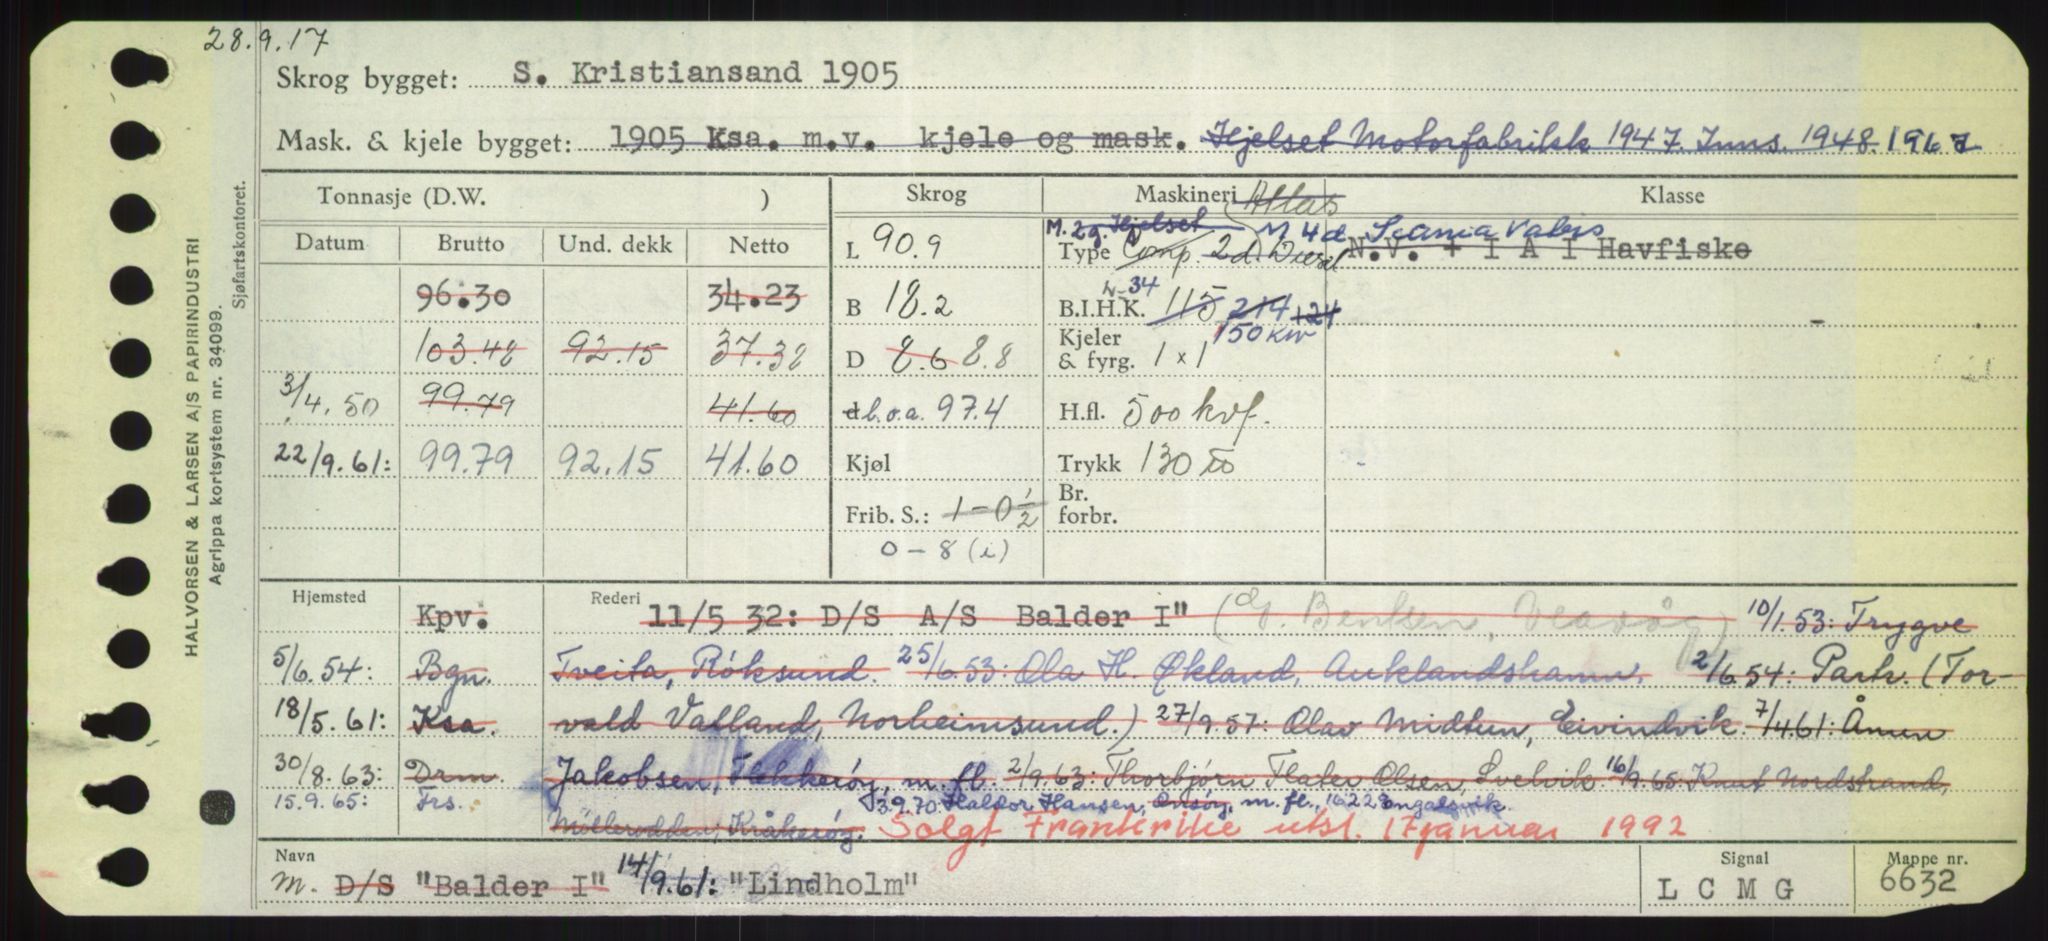 28.9.17
Skrog bygget: S. Kristiansand 1905
Mask. & kjele bygget: 1905 Ksa. m.v. kjele og mask. Hjelset Motorfabrikk 1947. Inns. 1948. 1967
HALVORSEN & LARSEN A/S PAPIRINDUSTRI
Agrippa kortsystem nr. 34099. Sjøfartskontoret.
Tonnasje (D.W. ) Skrog Maskineri Atlas Klasse
Datum Brutto Und. dekk Netto
L 90.9 M. 2g. Hjelset M 4d. Scania Vabis
Type Comp 2 d. Diesel N.V. + I A I Havfiske
96.30 34.23 B 18.2 B.I.H.K. N-34 115 214 124
150 kw
103.48 92.15 37.38 D 8.6 8.8 Kjeler & fyrg. 1 x 1
3/4.50 99.79 41.60 d l.o.a. 97.4 H.fl. 500 kvf.
22/9.61: 99.79 92.15 41.60 Kjøl Trykk 130
Frib. S.: 1-0 1/2 Br. forbr.
0 - 8 (i)
Hjemsted Kpv. Rederi 11/5 32: D/S A/S Balder I" Bentsen, 10/1.53: Trygve
5/6.54: Bgn. Tveita, Röksund. 25/6.53: Ola H. Økland, Auklandshamn. 2/6.54: Partr. (Tor-
18/5.61: Ksa. vald Vatland, Norheimsund.) 27/9.57: Olav Midtun, Eivindvik. 7/4.61: Ånen
30/8.63: Drm. Jakobsen, Flekkerøy, m. fl. 2/9.63: Thorbjørn Flater Olsen, Svelvik. 16/9.65: Knut Nordstrand,
15.9.65: Frs. 3.9.70: Haldor Hansen, Onsøy, m. fl., 1622 Engalsvik.
Möllerodden, Kråkerøy. Solgt Frankrike utsl. 17 januar 1992
Navn Signal Mappe nr.
M. D/S "Balder I" 14/9.61: "Lindholm" L C M G 6632